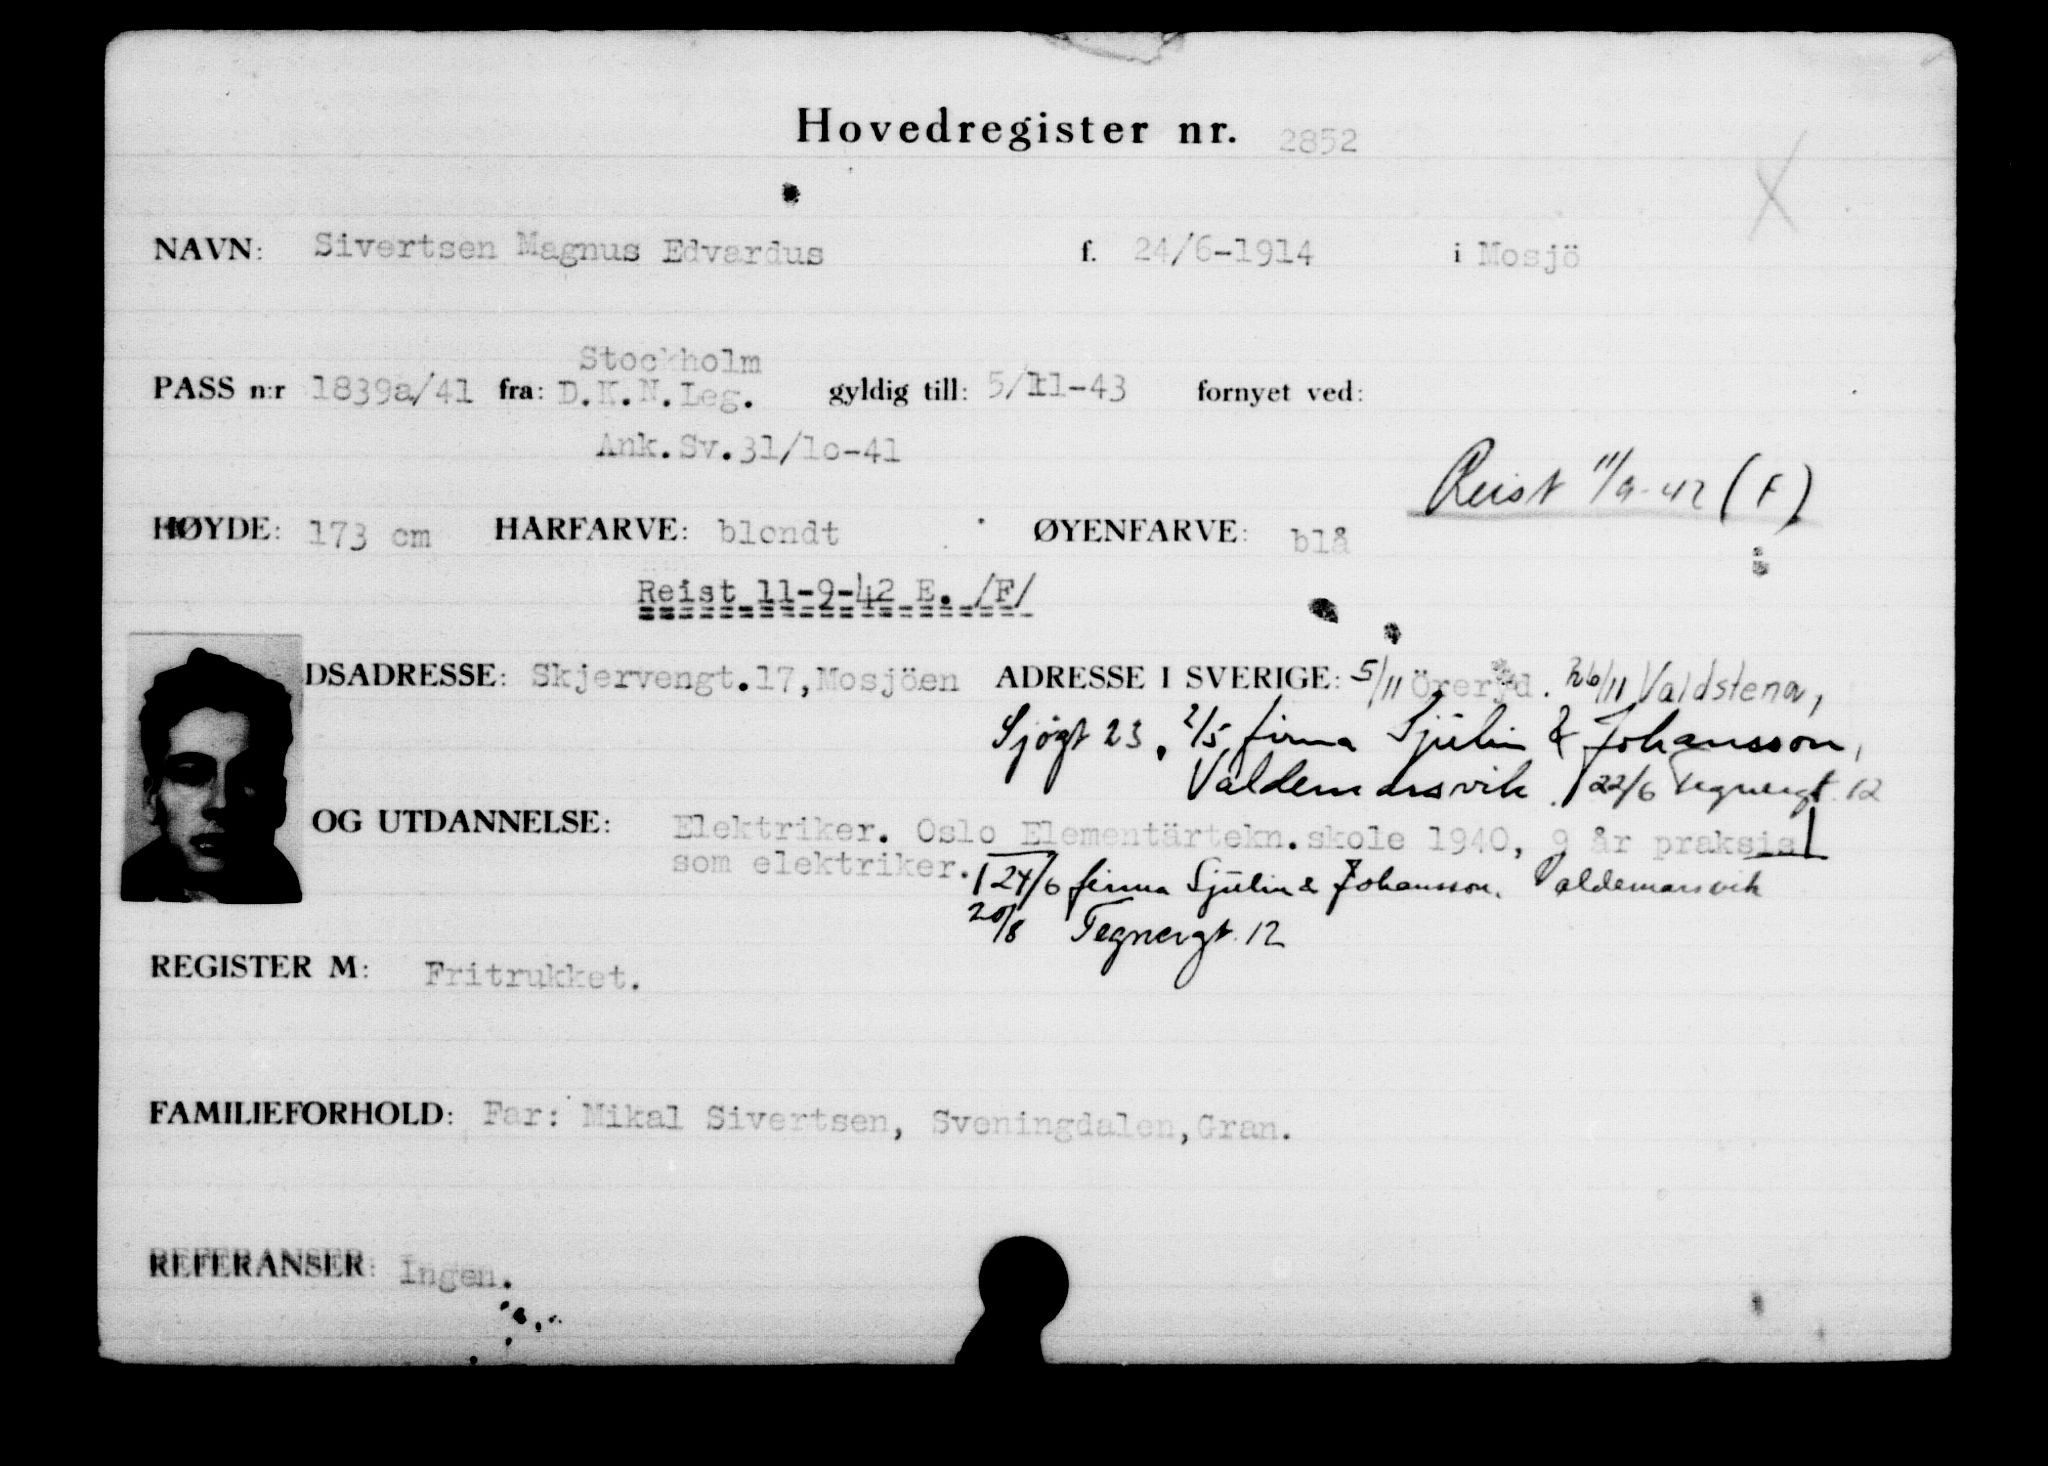 Hovedregister nr. 2852
NAVN: Sivertsen Magnus Edvardus f. 24/6-1914 i Mosjö
Stockholm
PASS n:r 1839a/41 fra: D.K.N.Leg. gyldig till: 5/11-43 fornyet ved:
Ank.Sv.31/1o-41
Reist 11/9-42 (F)
HØYDE: 173 cm HÅRFARVE: blondt ØYENFARVE: blå
Reist 11-9-42 E. /F/
DSADRESSE: Skjervengt.17,Mosjöen ADRESSE I SVERIGE: 5/11 Öreryd. 26/11 Valdstena,
Sjøgt 23, 2/5 firma Sjülin & Johansson,
Valdemarsvik. 22/6 Tegnergt. 12
OG UTDANNELSE: Elektriker. Oslo Elementärtekn.skole 1940, 9 år praksis
som elektriker. 24/6 firma Sjülin & Johansson. Valdemarsvik
20/8 Tegnergt. 12
REGISTER M: Fritrukket.
FAMILIEFORHOLD: Far: Mikal Sivertsen, Sveningdalen,Gran.
REFERANSER: Ingen.